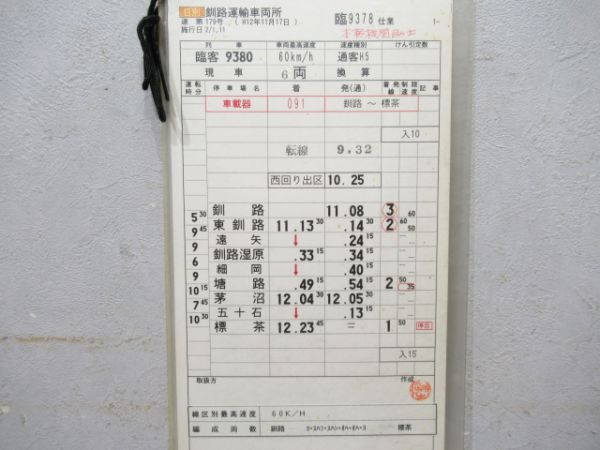 日別 釧路運輸車両所
達 第 179号 (H12年11月17日)
施行日 2/1.11
臨9378 仕業
1-
列車 車両最高速度 速度種別 けん引定数
臨客 9380 60km/h 通客H5
現車 6両 換算
運転時分 停車場名 着 発(通) 着発線 制限速度 記事
車載器 091 釧路 ～ 標茶
入10
転線 9.32
西回り出区 10.25
釧路 11.08 3 60
5 30 東釧路 11.13 30 .14 30 2 60 50
9 45 遠矢 ↓ .24 15
9 釧路湿原 .33 15 .34 15
6 細岡 ↓ .40 15
9 塘路 .49 15 .54 15 2 50 35
10 15 茅沼 12.04 30 12.05 30
7 45 五十石 ↓ .13 15
10 30 標茶 12.23 45 = 1 50 停目
入15
取扱方 作成
線区別最高速度 60K/H
編成両数 釧路 標茶